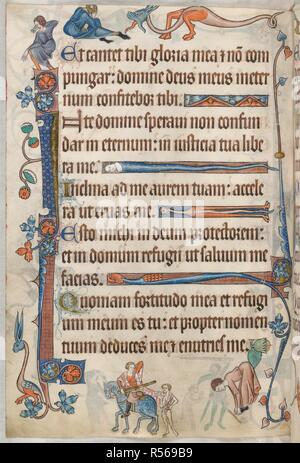 Et cantet tibi gloria mea: & nō com
pungar: domine deus meus in eter
num confitebor tibi.
In te domine speraui non confun
dar in eternum: in iusticia tua libe
ra me.
Inclina ad me aurem tuam: accele
ra ut eruas me.
Esto michi in deum protectorem:
et in domum refugii ut saluum me
facias.
Quoniam fortitudo mea et refugi
um meum es tu: et propter nomen
tuum deduces me & enutries me.
R569B9